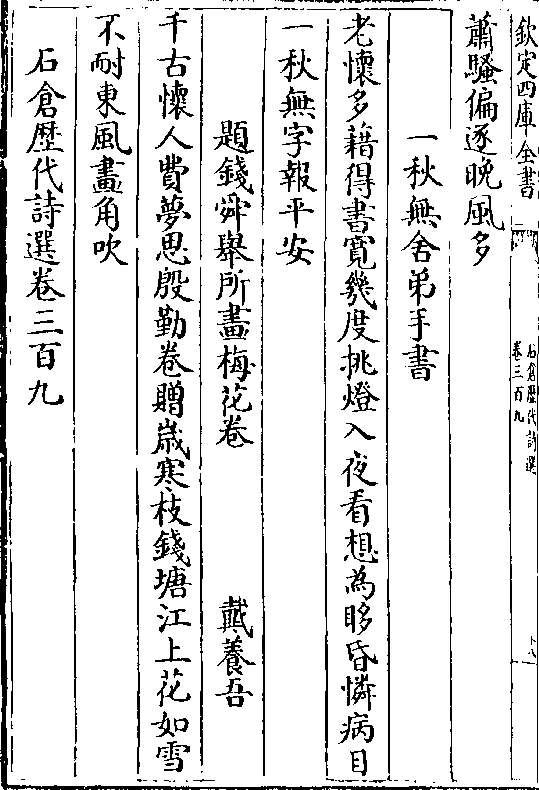 欽定四庫全書
石倉歴代詩選
卷三百九
十八
蕭騷偏逐晩風多
一秋無舍弟手書
老懷多藉得書寛幾度挑燈入夜看想為眵昏憐病目
一秋無字報平安
題錢舜舉所畫梅花卷　戴養吾
千古懷人費夢思殷勤卷贈歲寒枝錢塘江上花如雪
不耐東風畫角吹
石倉歴代詩選卷三百九